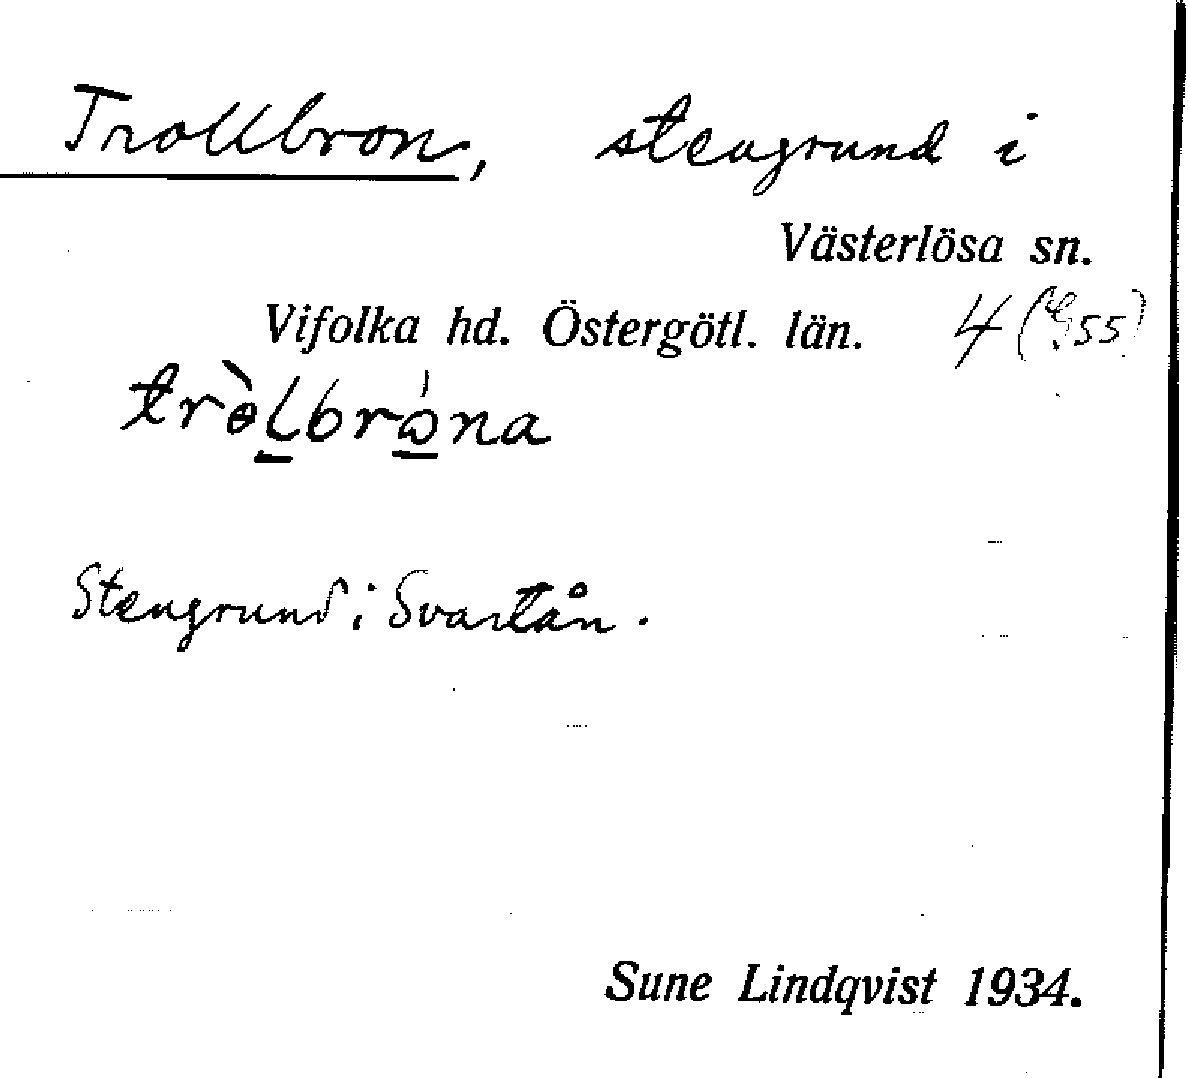 Trollbron, stengrund i
Västerlösa sn.
Vifolka hd. Östergötl. län. 4 (55)
trɵ̀lbrɷ́na
Stengrund i Svartån.
Sune Lindqvist 1934.